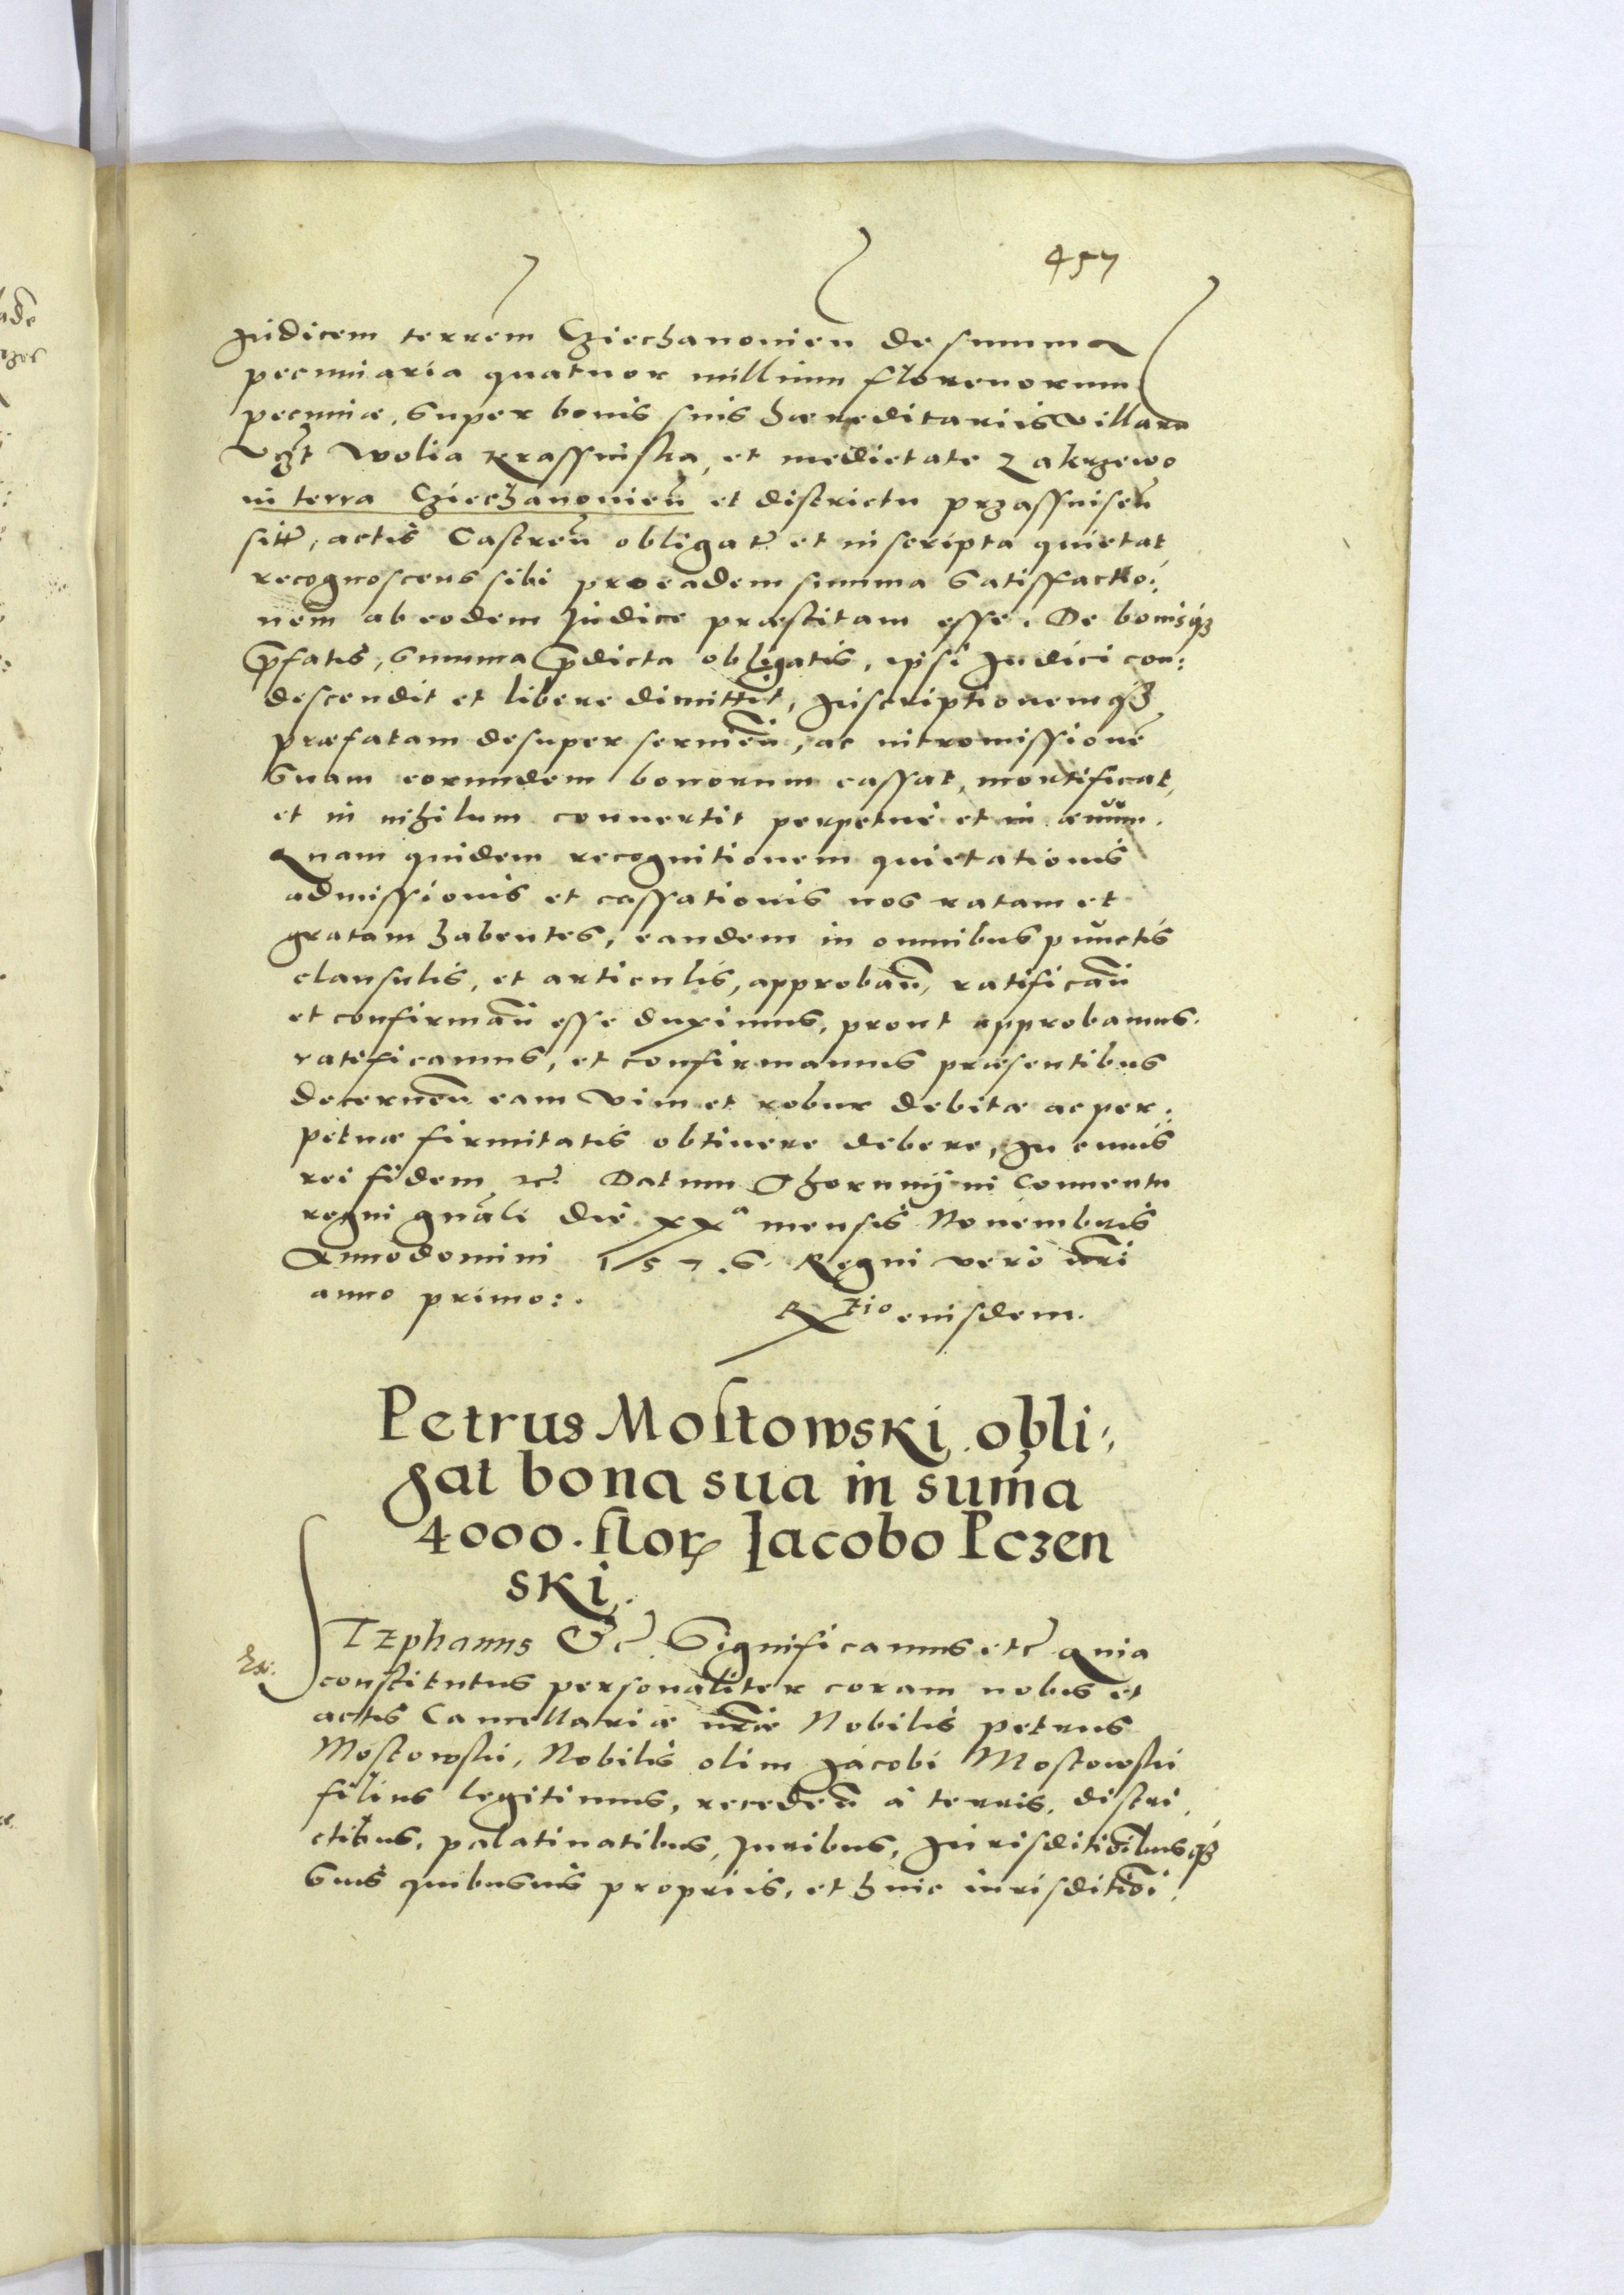 457
Iudicem terrem Cziechanouien de summa
pecuniaria quatuor millium florenorum
pecuniæ, super bonis suis hæreditariis villarum
vczt Wolia Krassinska, et medietate Zakrzewo
in terra Cziechanouien et districtu przassnisen
sitt, actis Castren obligat et inscripta quietat
recognoscens sibi pro eadem summa satisfactio:
nem ab eodem Iudice præstitam esse. De bonisq3
pfatis, summa pdicta obligatis, ipsi Iudici con:
descendit et libere dimittit, Inscriptionemq3
præfatam desuper seruien, ac intromissione
suam eorundem bonorum cassat, mortificat,
et in nihilum conuertit perpetue et in æuum.
Quam quidem recognitionem quietationis
admissionis et cassationis nos ratam et
gratam habentes, eandem in omnibus punctis
clausulis, et articulis, approban, ratifican
et confirman esse duximus, prout approbamus.
ratificamus, et confirmamus præsentibus
decernen eam vim et robur debitæ ac per:
petuæ firmitatis obtinere debere, In cuius
rei fidem etc. Datum Thorunij in Conuentu
regni gnali die xxa mensis Nouembris
Anno domini 1576. Regni vero nri
anno primo:.
Rtio eiusdem.
Petrus Mostowski obli:
gat bona sua in suma
4000. flor Jacobo Pczen
ski.
Ex:
STEphanus Etc. Significamus etc quia
constitutus personaliter coram nobis et
actis Cancellariæ nræ Nobilis Petrus
Mostowski, Nobilis olim Jacobi Mostowski
filius legitimus, receden a terris, distri,
ctibus, palatinatibus, Iuribus, Iurisditionibusq3
suis quibusuis propriis, et huic iurisditioni,